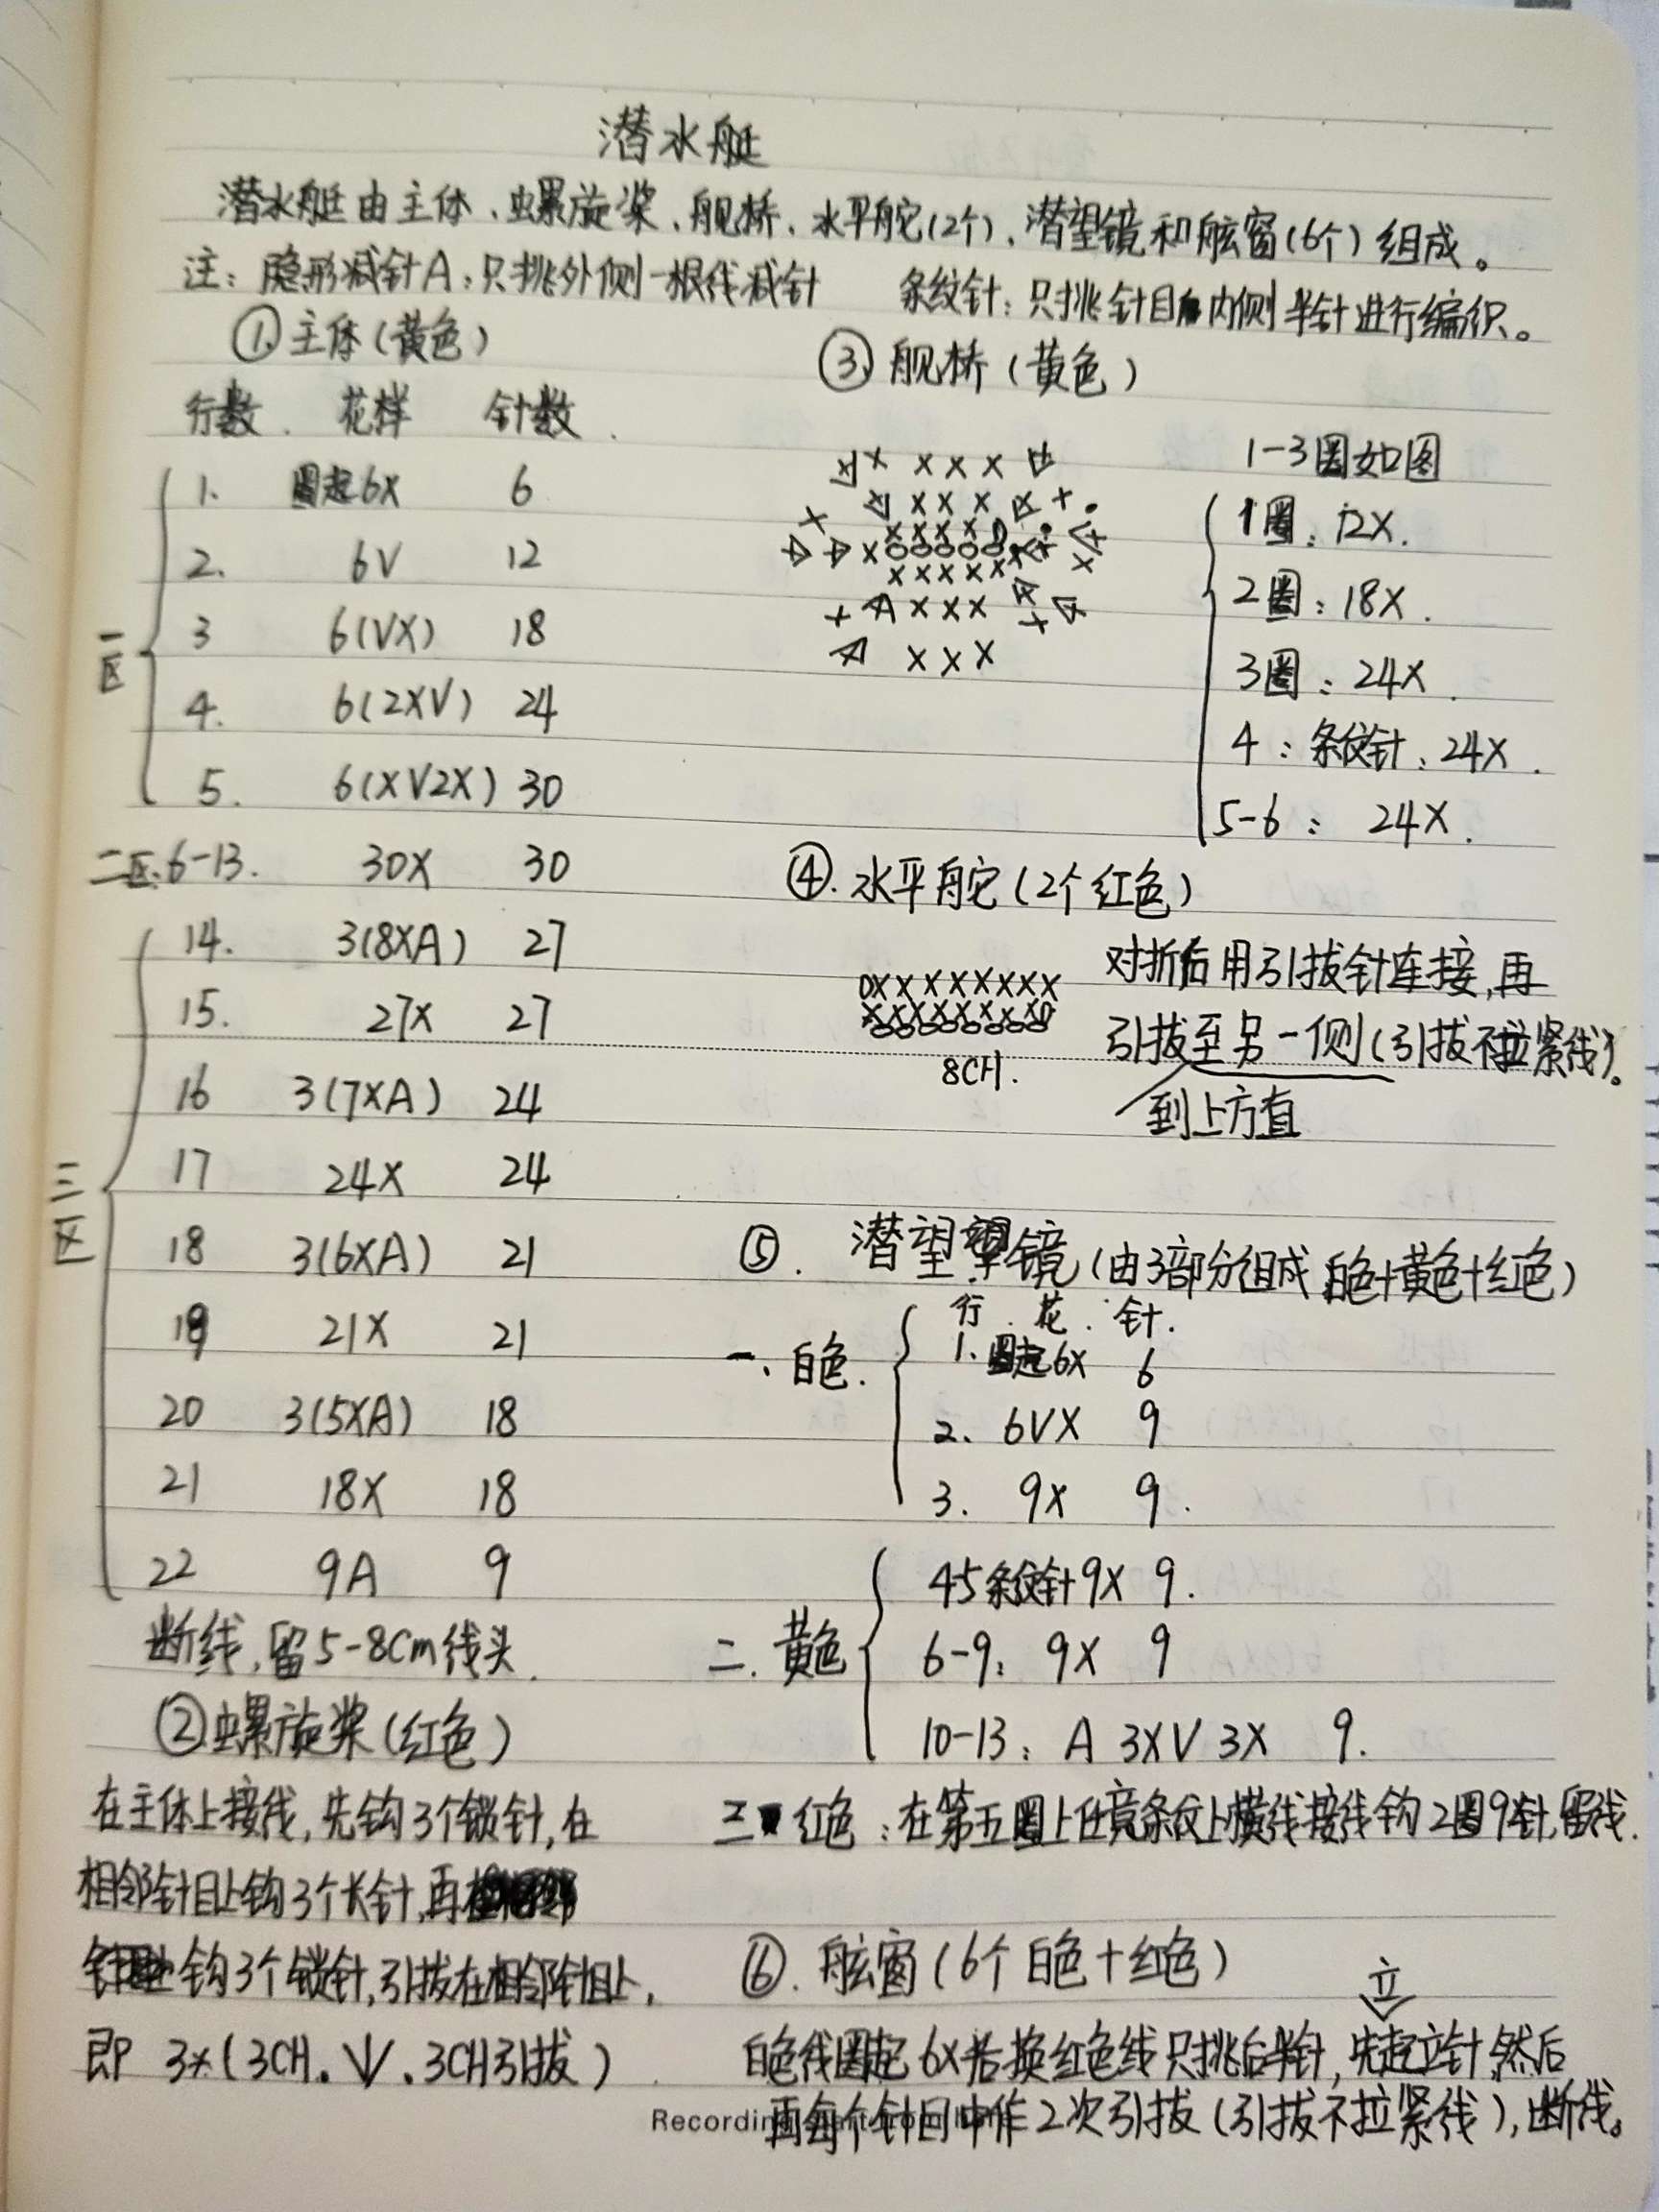 潜水艇
潜水艇由主体、螺旋桨、舰桥、水平舵(2个)、潜望镜和舷窗(6个)组成。
注:隐形减针A:只挑外侧一根线减针 条纹针:只挑针目内侧半针进行编织。
①主体(黄色)
行数 花样 针数
一区
1. 圈起6X 6
2. 6V 12
3 6(VX) 18
4. 6(2XV) 24
5. 6(XV2X) 30
二区 6-13. 30X 30
三区
14. 3(8XA) 27
15. 27X 27
16 3(7XA) 24
17 24X 24
18 3(6XA) 21
19 21X 21
20 3(5XA) 18
21 18X 18
22 9A 9
断线,留5-8cm线头.
②螺旋桨(红色)
在主体上接线,先钩3个锁针,在
相邻针目上钩3个长针,再
钩3个锁针,引拔在相邻针目上,
即 3*(3CH. . 3CH引拔)
③舰桥(黄色)
1-3圈如图
1圈:12X.
2圈:18X.
3圈:24X.
4:条纹针:24X.
5-6: 24X.
④.水平舵(2个红色)
对折后用引拔针连接,再
引拔至另一侧(引拔不拉紧线)。
到上方直
8CH.
⑤. 潜望镜(由3部分组成 白色+黄色+红色)
行 . 花 . 针.
一、白色.
1. 圈起6X 6
2. 6VX 9
3. 9X 9.
二. 黄色
45条纹针9X 9.
6-9: 9X 9
10-13: A 3XV 3X 9.
三 红色:在第五圈上任意条纹上横线接线钩2圈9针,留线.
⑥. 舷窗(6个 白色+红色)
立
白色线圈起6X后换红色线只挑后半针,先起立针,然后
再每个针目中作2次引拔(引拔不拉紧线),断线。
Recording